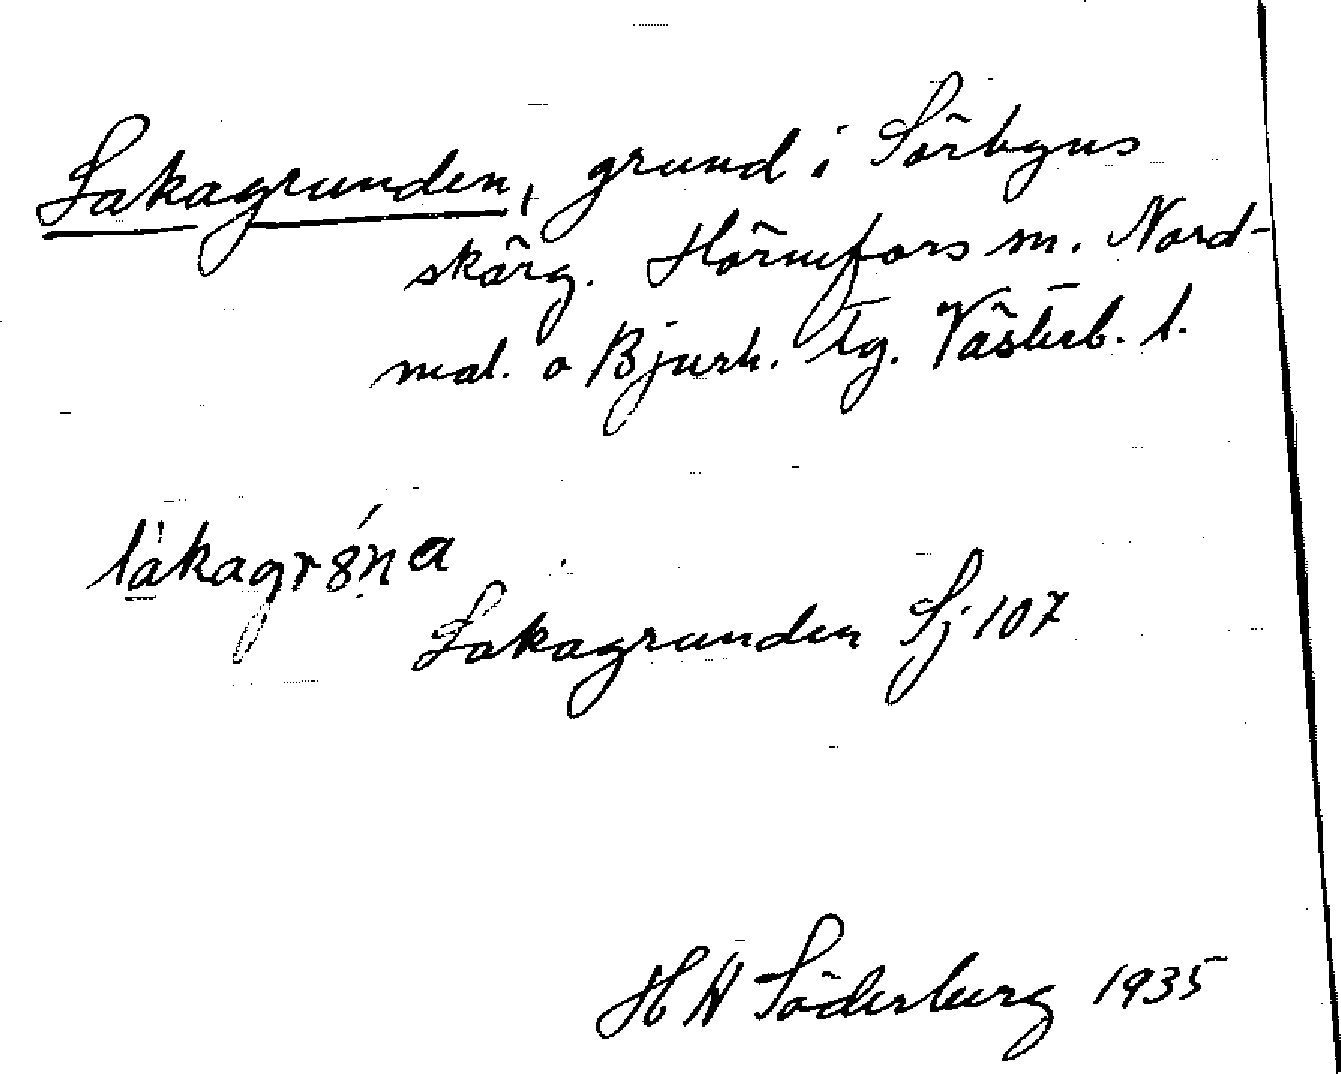 Lakagrunden, grund i Sörbyns
skärg. Hörnefors sn. Nord-
mal. o Bjurh. tg. Västerb. l.
Lakagrunden Sj 107
H W Söderberg 1935